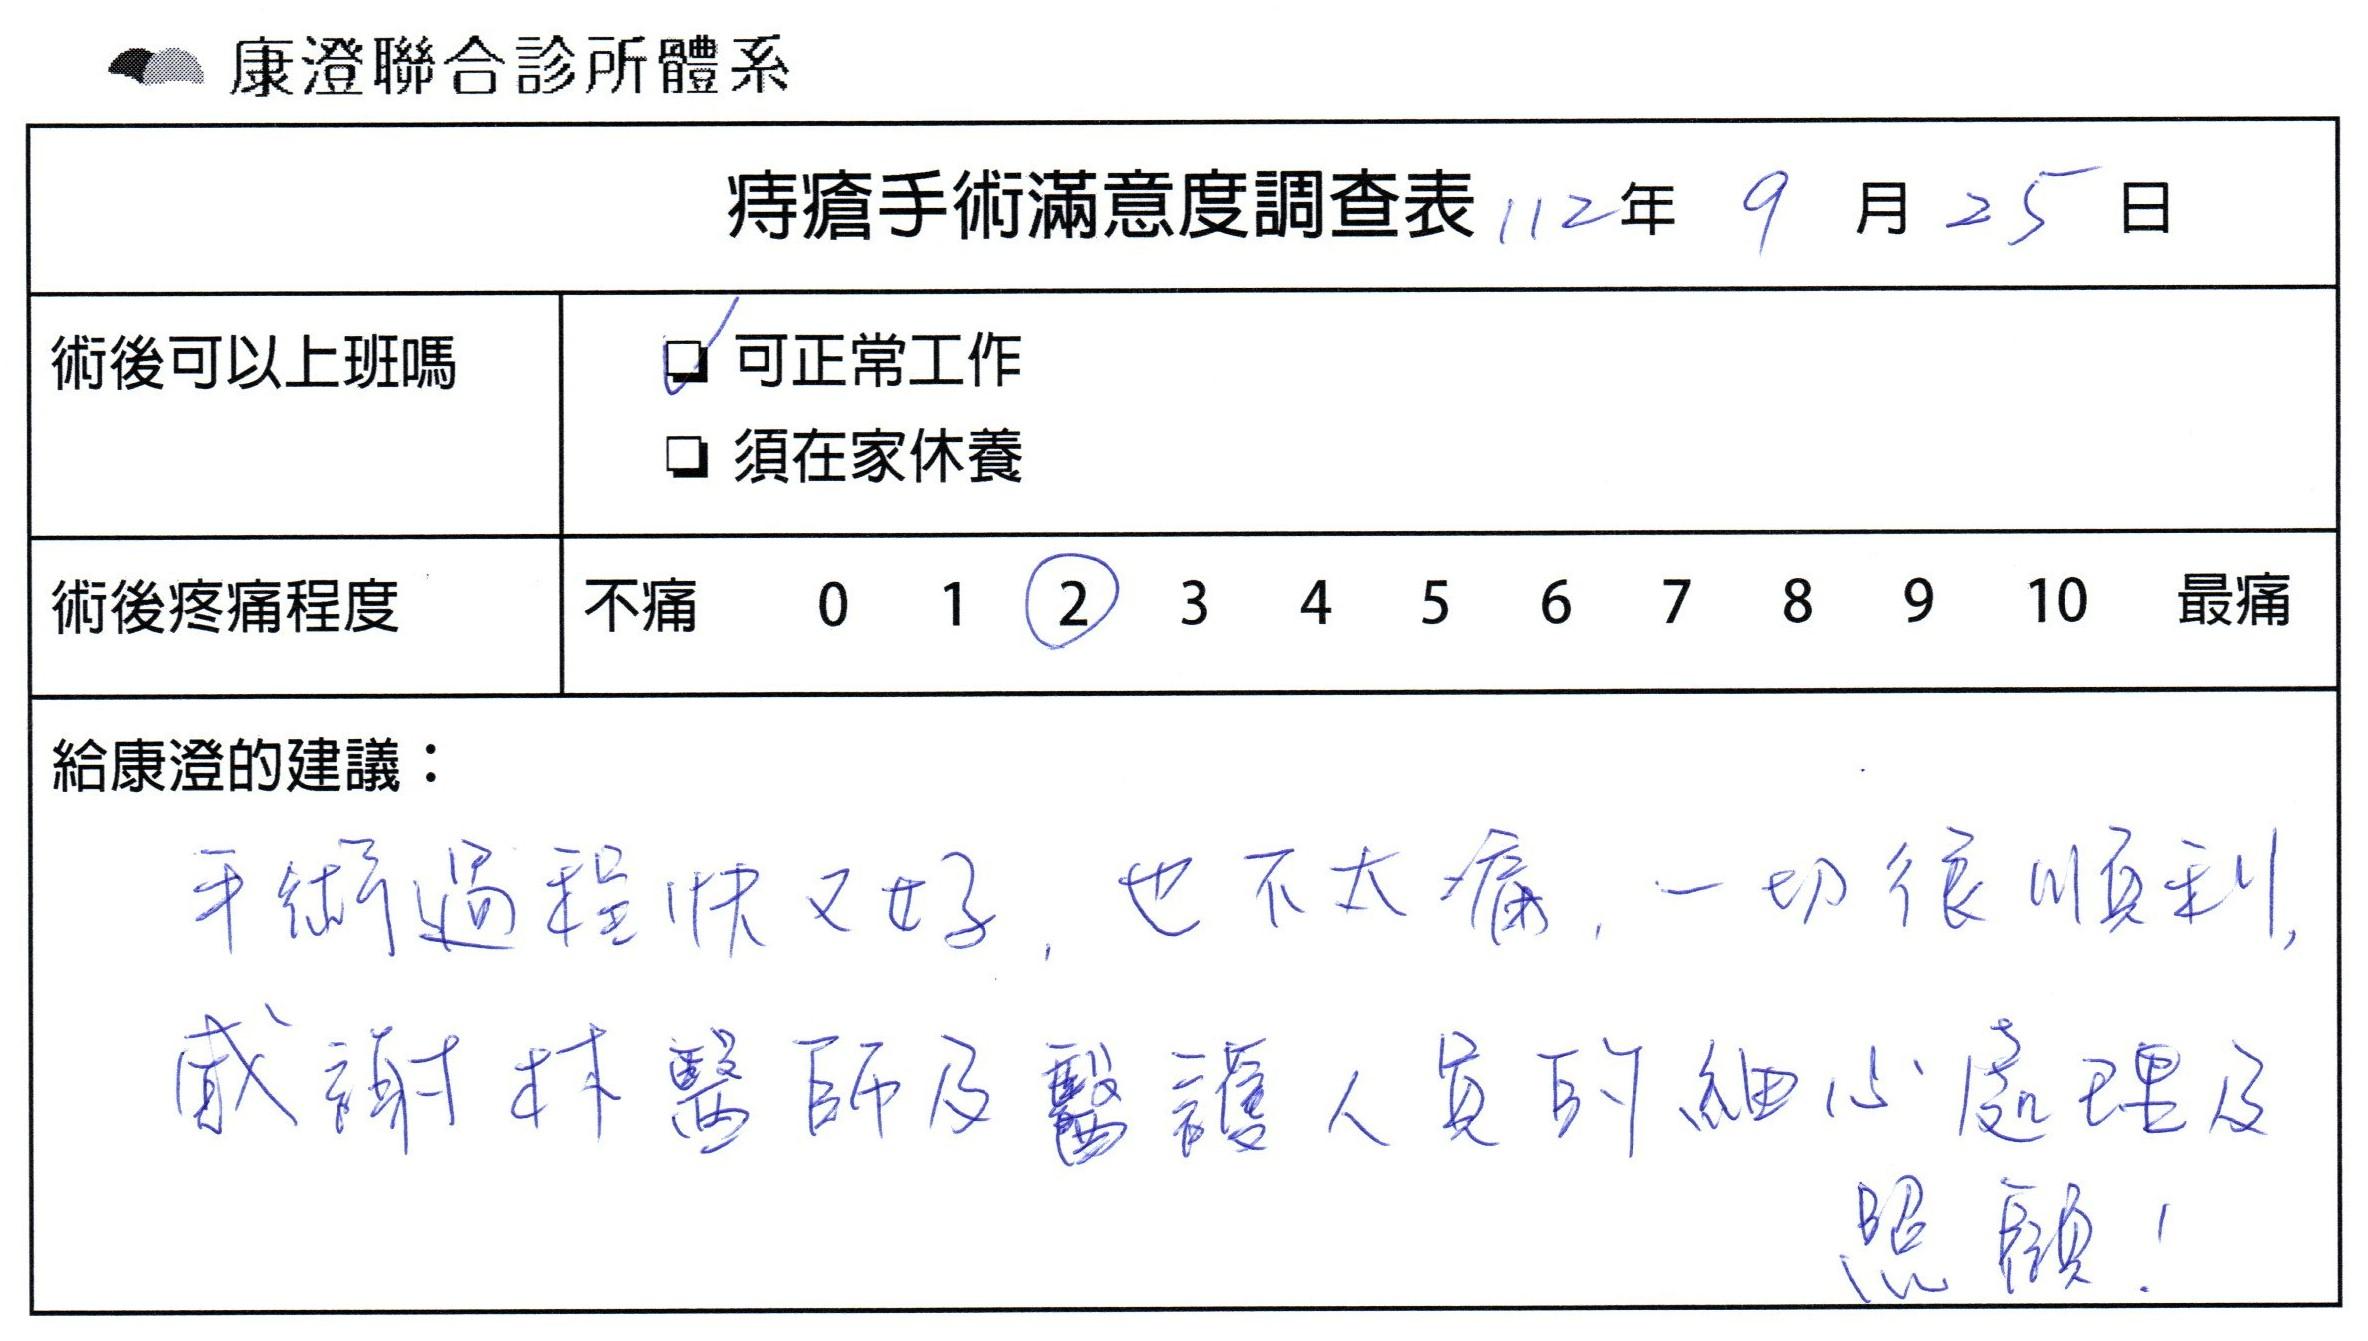 康澄聯合診所體系
痔瘡手術滿意度調查表 112年 9月25日
術後可以上班嗎
可正常工作
須在家休養
術後疼痛程度 不痛 0 1 2 3 4 5 6 7 8 9 10 最痛
給康澄的建議：
手術過程快又好,也不太痛,一切很順利,
感謝林醫師及醫護人員的細心處理及
照顧!